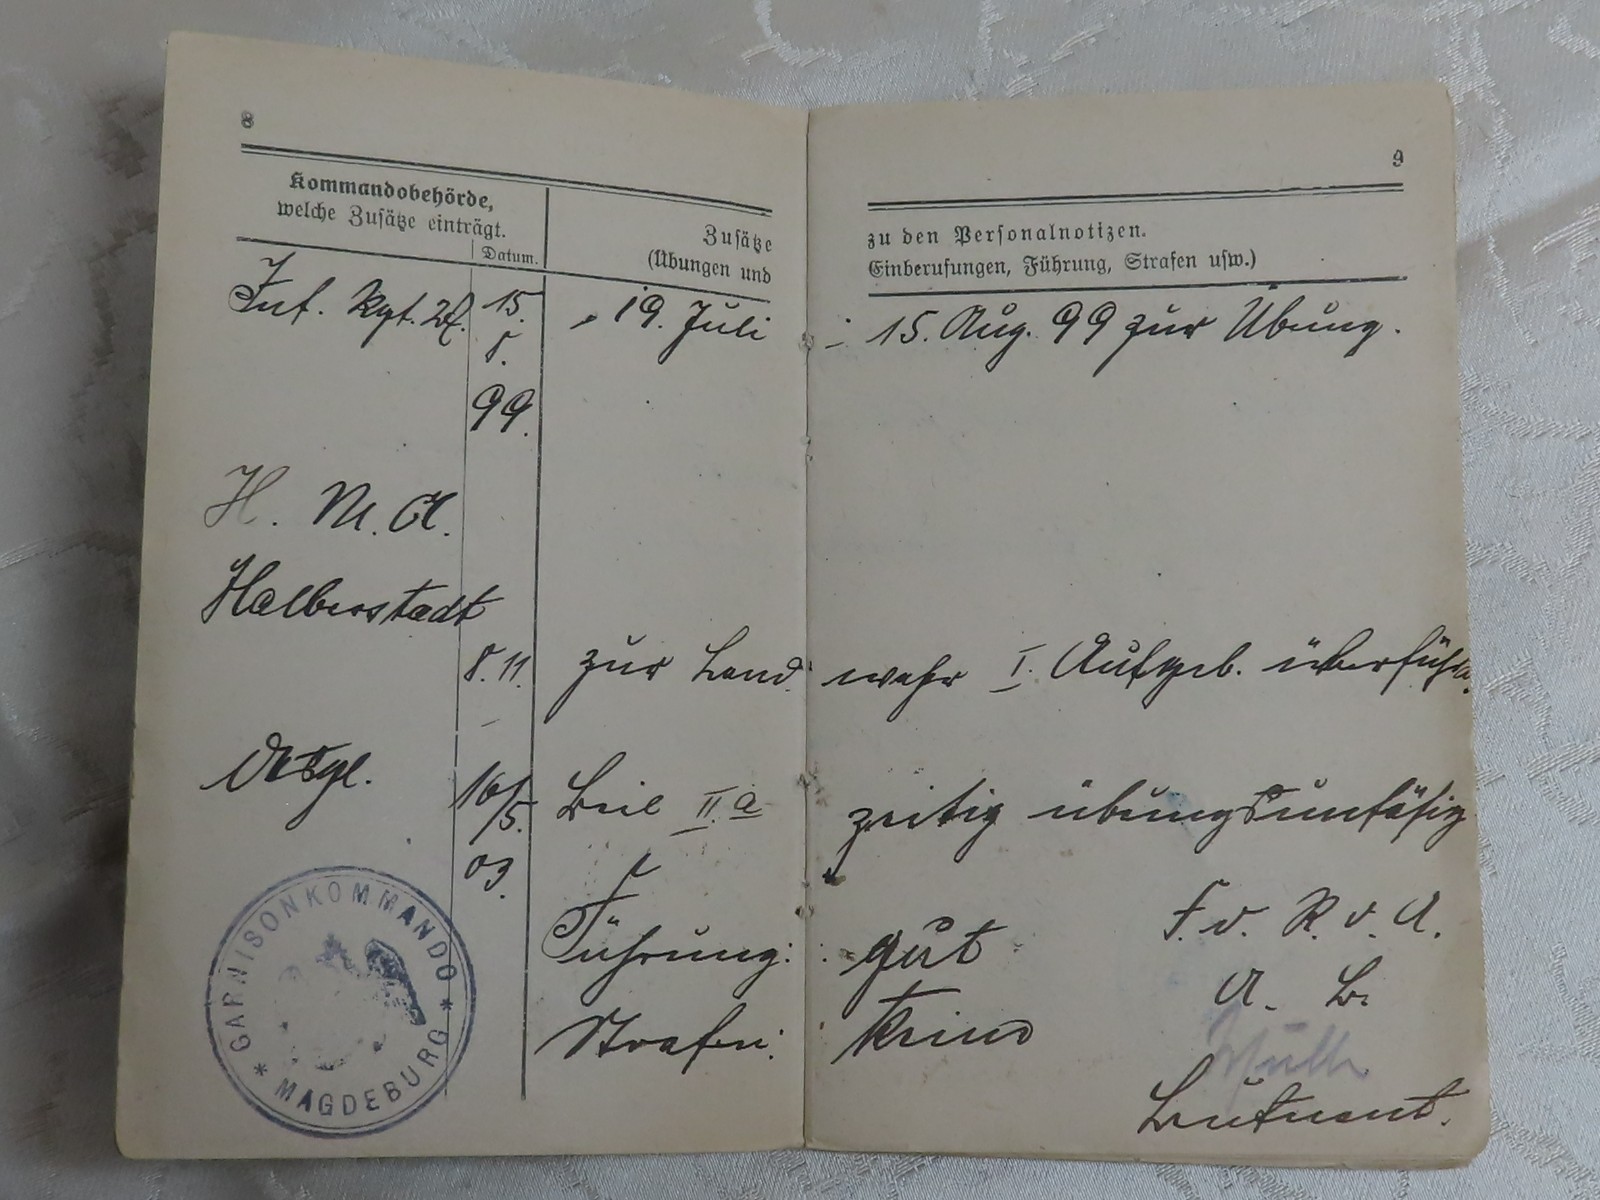 8
Kommandobehörde,
welche Zusätze einträgt.
Datum.
Zusätze
(Übungen und
Inf. Rgt. 27. 15. 8. 99. 19. Juli
H. M. A.
Halberstadt
8. 11. zur Land
Desgl. 16/5. 03. II. a
Führung:
Strafen:
* GARNISONKOMMANDO *
MAGDEBURG
9
zu den Personalnotizen.
Einberufungen, Führung, Strafen usw.)
- 15. Aug. 99 zur Übung.
wehr I. Aufgeb. überführt.
zeitig übungsunfähig
F. d. R. d. A.
gut
A. B.
Keine
Leutnant.